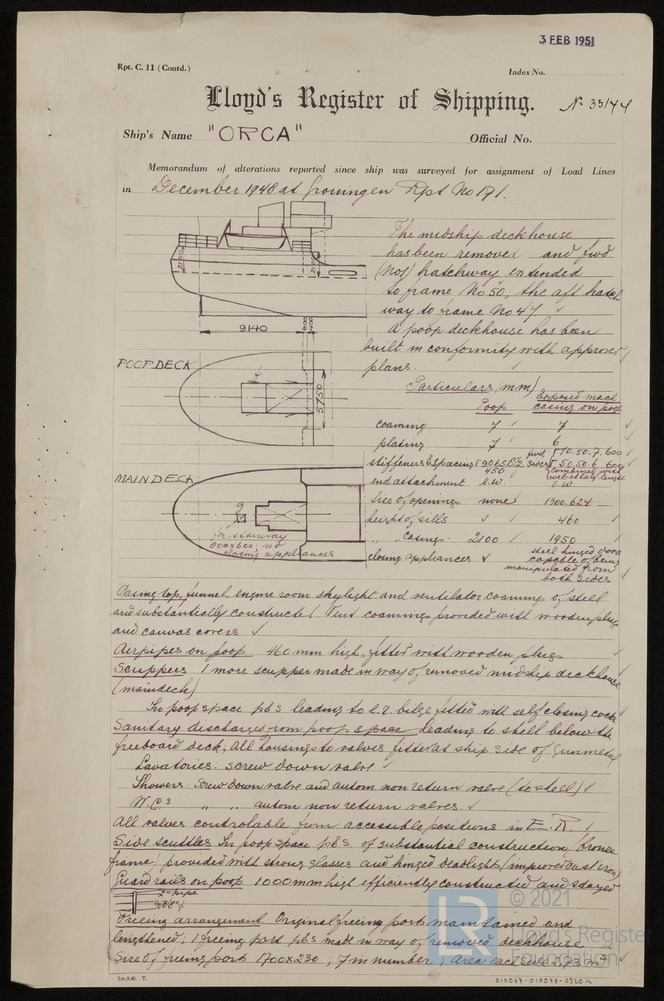 3 FEB 1951
Rpt. C. 11 (Contd.)
Index No.
Lloyd's Register of Shipping.
No 33144
Ship's Name "ORCA"
Official No.
Memorandum of alterations reported since ship was surveyed for assignment of Load Lines
in December 1948 at Groningen Rpt No 171.
The midship deckhouse
has been removed and fwd
(No1) hatchway extended
to frame No 50, the aft hatch
way to frame No 47
a poop deckhouse has been
built in conformity with approved
plans.
2100
2100
9.140
600
400
POOP DECK
5750
Particulars (mm)
Poop
exposed mach
casing on poop
coaming 7 7
plating 7 6
stiffeners & spacing
450
fwd 70.50.7. 600
sides 50.50.6 600
end attachment l.w.
combined with
l.w.
size of openings none 1300.624
height of sills 460
" " casings 2100 1950
closing appliances
steel hinged doors
capable of being
manipulated from
both sides
MAIN DECK
for stairway
800x600; no
closing appliances
Casing top, funnel, engine room skylight and ventilator coamings of steel
and substantially constructed. Vent coamings provided with wooden plugs
and canvas covers
Airpipes on poop 460 mm high, fitted with wooden plugs
Scuppers 1 more scupper made in way of removed midship deckhouse
(maindeck)
In poop space p&s leading to E.R. bilge fitted with selfclosing cocks
Sanitary discharges from poop space leading to shell below the
freeboard deck. All housings to valves fitted at ship side of gunmetal
Lavatories: screw down valve
Showers: screw down valve and autom non return valve (to shell)
W.C's " " autom non return valves.
All valves controlable from accessible positions in E.R.
Side scuttles In poop space p&s of substantial construction (bronze
frame) provided with strong glasses and hinged deadlights (improved cast iron)
Guard rails on poop 1000mm high efficiently constructed and stayed
2" pipe
Freeing arrangement Original freeing ports maintained and
lengthened; 1 freeing port p&s made in way of removed deckhouse
Size of freeing ports 1700x230, 7 in number, Area each side 2,73 m²
© 2021
LR
Lloyd's Register
Foundation
010069-010078-0320